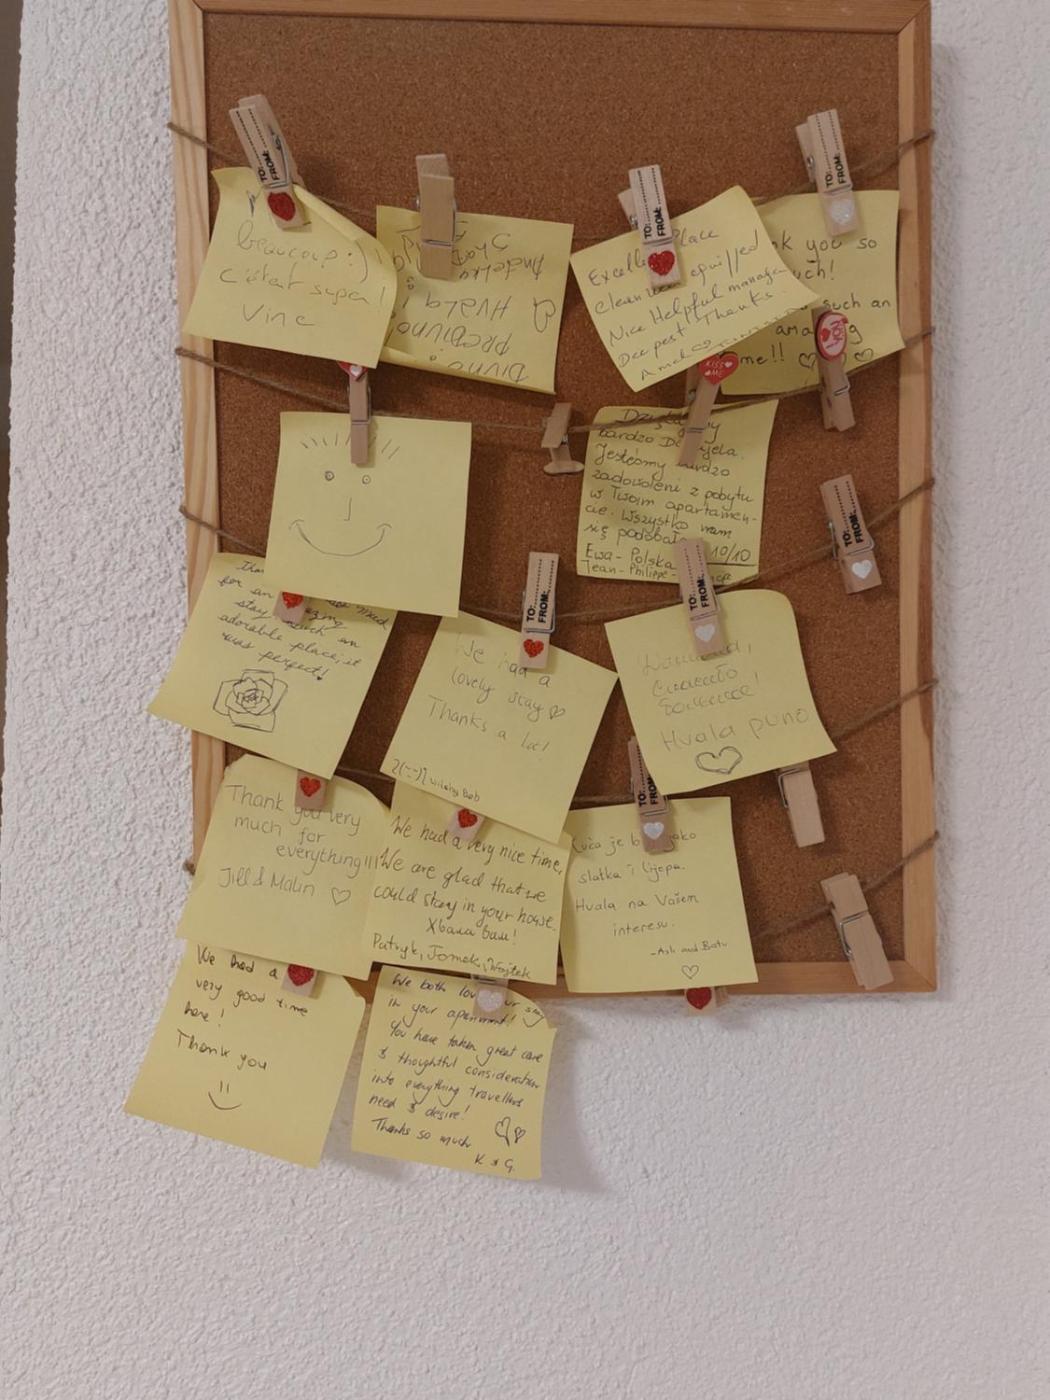 beaucoup :)
c'était super!
Vinc
Divno,
predivno
Hvala!
Anđelka
TO:
FROM:
Excelle Place
Clean equipped
Nice Helpful manager
Deepest Thanks.
TO:
FROM:
nk you so
uch!
such an
ama g
me!!
TO:
FROM:
KISS
ME
bardzo
Jesteśmy bardzo
zadowoleni z pobytu
w Twoim apartamen-
cie. Wszystko nam
się podobało 10/10
Ewa - Polska
Jean-Philippe -
TO:
FROM:
for an azing
stay such an
adorable place, it
was perfect!
We had a
lovely stay
Thanks a lot!
TO:
FROM:
Спасибо
большое!
Hvala puno
TO:
FROM:
Thank you very
much for
everything!!!
Jill & Malin
We had a very nice time,
We are glad that we
could stay in your house.
Хвала вам!
Patryk, Tomek, Wojtek
Kuća je b jako
slatka i lijepa.
Hvala na Vašem
interesu.
- Aslı and Batu
TO:
FROM:
We had a
very good time
here!
Thank you
We both lov ur stay
in your apartment!
You have taken great care
& thoughtful consideration
into everything travellers
need & desire!
Thanks so much
K & G.